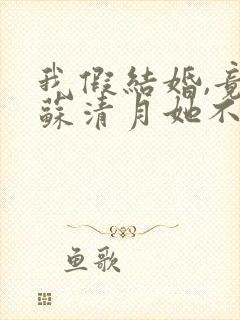 我假結婚,竟
蘇清月她不
鱼歌